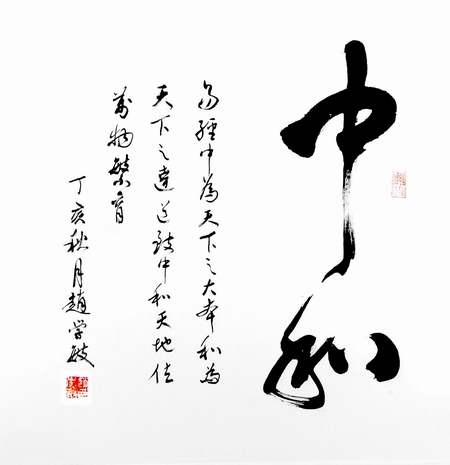 中和
易經中為天下之大本和為
天下之達道致中和天地位
萬物繁育
丁亥秋月趙学敏